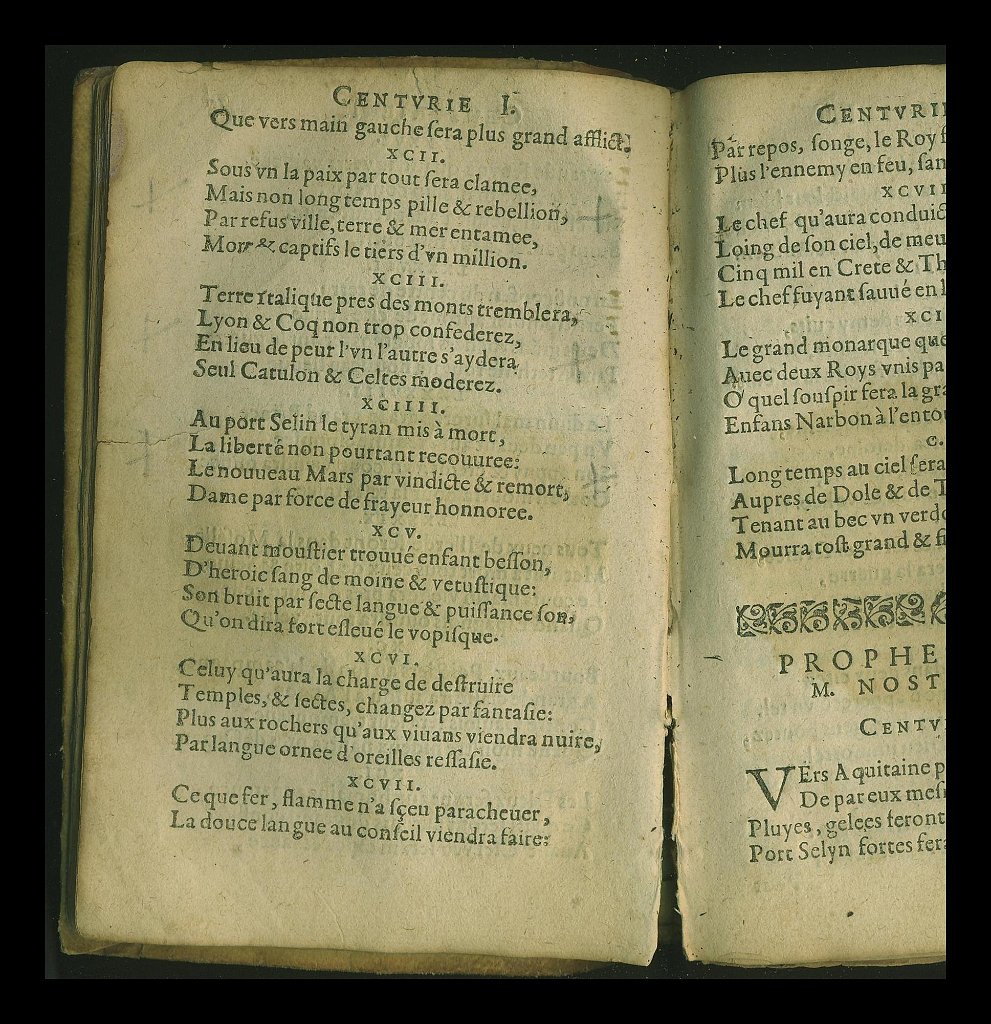 CENTVRIE I.
Que vers main gauche ſera plus grand afflict.
XCII.
Sous vn la paix par tout ſera clamee,
Mais non long temps pille & rebellion,
Par refus ville, terre & mer entamee,
Mort & captifs le tiers d'vn million.
XCIII.
Terre Italique pres des monts tremblera,
Lyon & Coq non trop confederez,
En lieu de peur l'vn l'autre s'aydera,
Seul Catulon & Celtes moderez.
XCIIII.
Au port Selin le tyran mis à mort,
La liberté non pourtant recouuree:
Le nouueau Mars par vindicte & remort,
Dame par force de frayeur honnoree.
XCV.
Deuant mouſtier trouué enfant beſſon,
D'heroic ſang de moine & vetuſtique:
Son bruit par ſecte langue & puiſſance ſon,
Qu'on dira fort eſleué le vopiſque.
XCVI.
Celuy qu'aura la charge de deſtruire
Temples, & ſectes, changez par fantaſie:
Plus aux rochers qu'aux viuans viendra nuire,
Par langue ornee d'oreilles reſſaſie.
XCVII.
Ce que fer, flamme n'a ſçeu paracheuer,
La douce langue au conſeil viendra faire:
CENTVRI
Par repos, ſonge, le Roy
Plus l'ennemy en feu,
XCVII
Le chef qu'aura
Loing de ſon ciel, de
Cinq mil en Crete &
Le chef fuyant ſauué en
XCI
Le grand monarque que
Auec deux Roys vnis
O quel ſouſpir fera la
Enfans Narbon à
C.
Long temps au ciel ſera
Aupres de Dole & de
Tenant au bec vn
Mourra toſt grand &
PROPHE
M. NOST
CENTV
VErs Aquitaine
De par eux
Pluyes, gelees feront
Port Selyn fortes